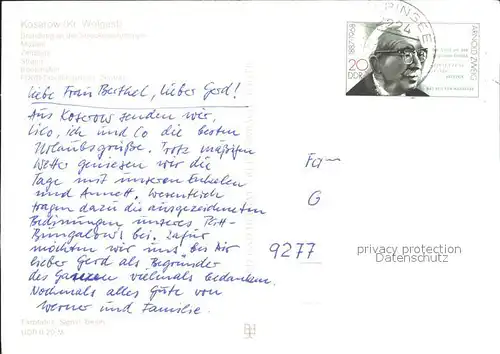 Koserow üb. Wolgast
20
DDR
1887-1968
ARNOLD ZWEIG
Liebe Frau Berthel, lieber Gerd!
Aus Koserow senden wir,
Lilo, ich und Co die besten
Urlaubsgrüße. Trotz mäßigen
Wetter geniesen wir die
Tage mit unseren Enkelen
und Annett. Wesentlich
tragen dazu die ausgezeichneten
Bedinungen unseres
Bungalows bei. Dafür
möchten wir uns bei Dir
lieber Gerd als Begründer
des Ganzen vielmals bedanken.
Nochmals alles Gute von
Werner und Familie.
Fam
G
9277
privacy protection
Datenschutz